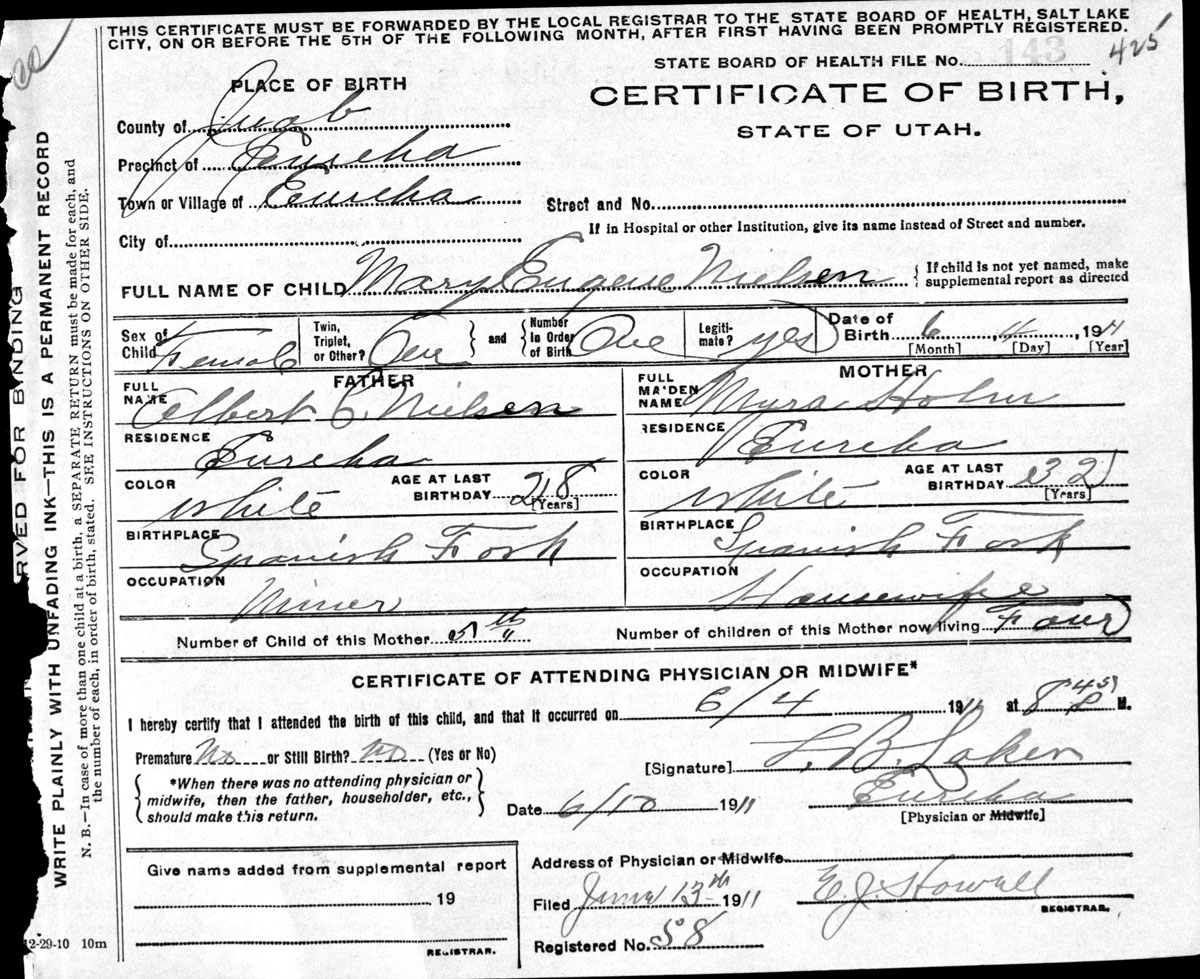 THIS CERTIFICATE MUST BE FORWARDED BY THE LOCAL REGISTRAR TO THE STATE BOARD OF HEALTH, SALT LAKE
CITY, ON OR BEFORE THE 5TH OF THE FOLLOWING MONTH, AFTER FIRST HAVING BEEN PROMPTLY REGISTERED.
STATE BOARD OF HEALTH FILE No. 143
425
PLACE OF BIRTH
CERTIFICATE OF BIRTH,
STATE OF UTAH.
County of Juab
Precinct of Eureka
Town or Village of Eureka
Street and No.
If in Hospital or other Institution, give its name instead of Street and number.
City of
FULL NAME OF CHILD Mary Eugene Nielsen { If child is not yet named, make
supplemental report as directed
Sex of
Child Female
Twin,
Triplet,
or Other? One
and
Number
In Order
of Birth One
Legiti-
mate? yes
Date of
Birth 6, 4, 1911
[Month] [Day] [Year]
FATHER
FULL
NAME Albert C. Nielsen
RESIDENCE
Eureka
COLOR
White
AGE AT LAST
BIRTHDAY 28
[Years]
BIRTHPLACE
Spanish Fork
OCCUPATION
Miner
MOTHER
FULL
MAIDEN
NAME Myra Holm
RESIDENCE
Eureka
COLOR
White
AGE AT LAST
BIRTHDAY 32
[Years]
BIRTHPLACE
Spanish Fork
OCCUPATION
Housewife
Number of Child of this Mother 5th
Number of children of this Mother now living Four
CERTIFICATE OF ATTENDING PHYSICIAN OR MIDWIFE*
I hereby certify that I attended the birth of this child, and that it occurred on 6/4 1911 at 8 45 P M.
Premature No or Still Birth? No (Yes or No)
*When there was no attending physician or
midwife, then the father, householder, etc.,
should make this return.
[Signature] B.
Date 6/10 1911
Eureka
[Physician or Midwife]
Give name added from supplemental report
19
REGISTRAR.
Address of Physician or Midwife
Filed June 13th 1911
E. J. Howell
REGISTRAR.
Registered No. 58
12-29-10 10m
RVED FOR BINDING
WRITE PLAINLY WITH UNFADING INK—THIS IS A PERMANENT RECORD
N. B.—In case of more than one child at a birth, a SEPARATE RETURN must be made for each, and
the number of each, in order of birth, stated. SEE INSTRUCTIONS ON OTHER SIDE.